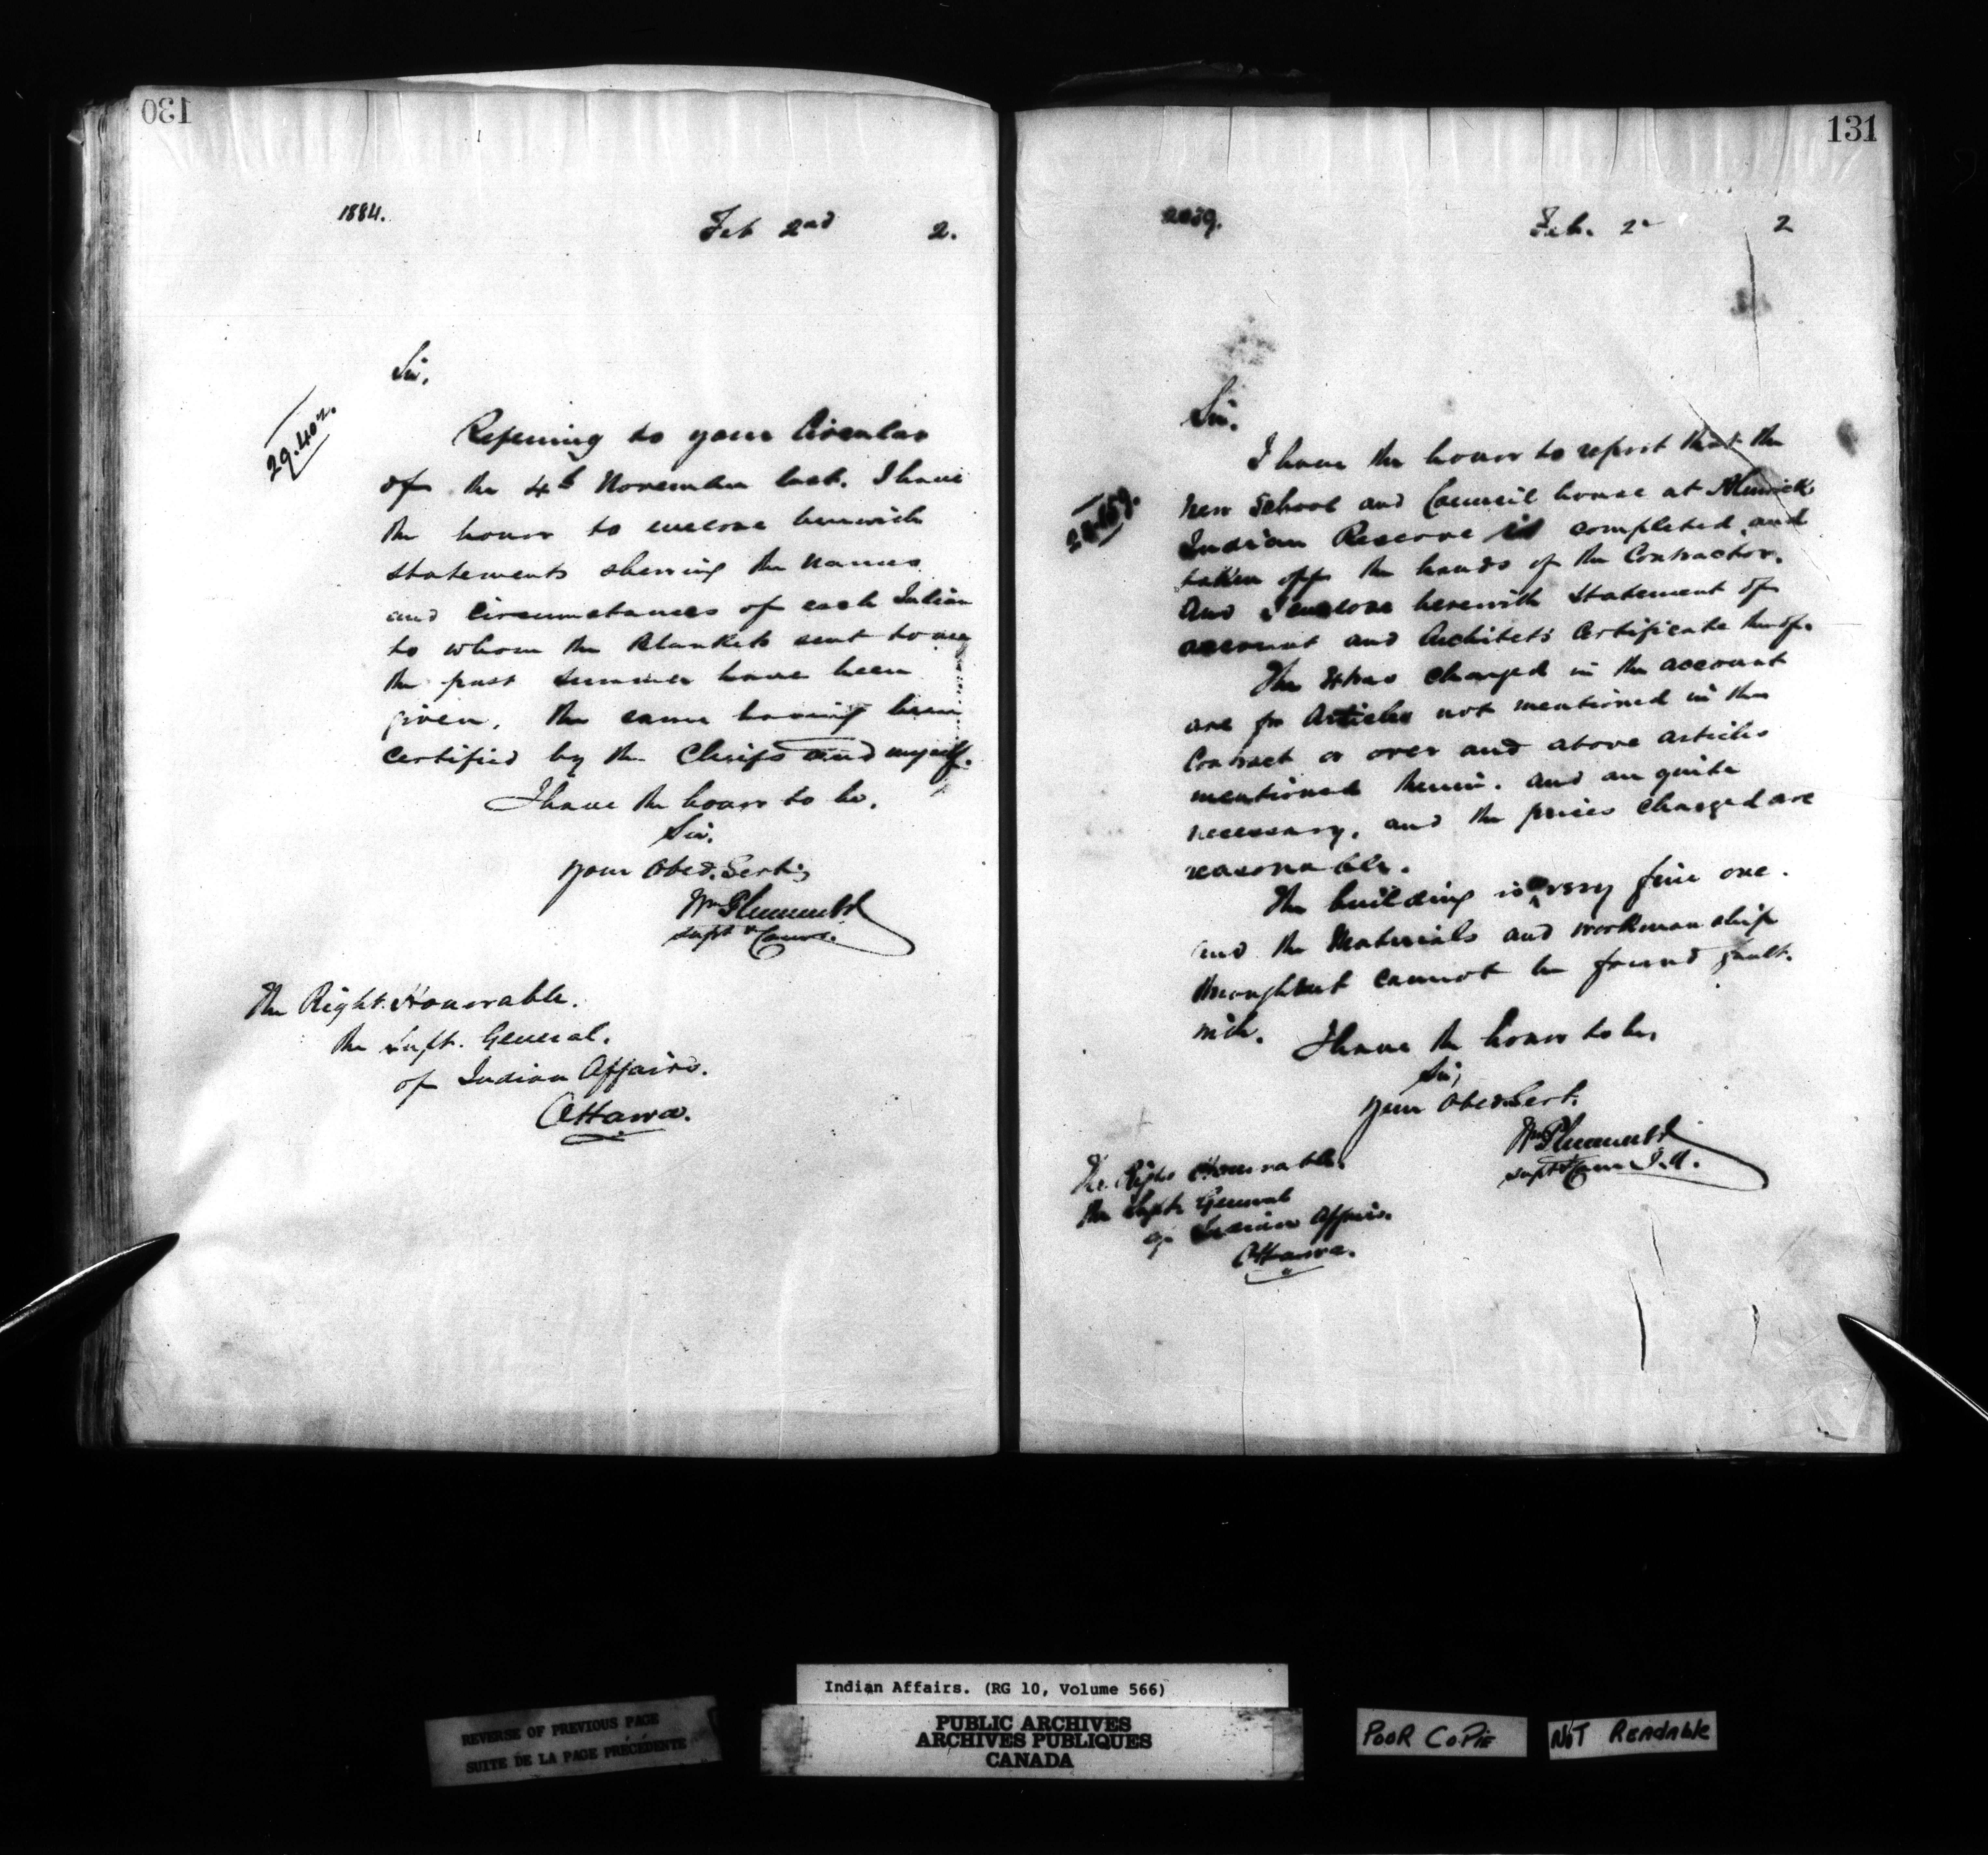 130
1884.
Feb 2nd 2.
29.402.
Sir,
Referring to your Circular
of the 4th November last. I have
the honor to enclose herewith
statements shewing the names
and circumstances of each Indian
to whom the Blankets sent to me
the past summer have been
given, the same having been
certified by the Chiefs and myself.
I have the honor to be,
Sir,
Your Obed. Servt,
Wm Plummer
Supt & Comr.
The Right Honorable.
the Supt. General.
of Indian Affairs.
Ottawa.
131
Feb. 2
2
Sir.
I have the honor to report that the
new School and Council house at Alnwick
Indian Reserve is completed and
taken off the hands of the Contractor.
And I enclose herewith Statement of
account and Architet's Certificate thereof.
The Extras charged in the account
are for Articles not mentioned in the
Contract or over and above articles
mentioned therein. and are quite
necessary, and the prices charged are
reasonable.
The building is a very fine one.
and the Materials and workmanship
throughout cannot be found fault
with.
I have the honor to be,
Sir,
Your Obed Servt.
Wm Plummer
Supt & Comr I.A.
The Right Honorable.
the Supt General
of Indian Affairs.
Ottawa.
Indian Affairs. (RG 10, Volume 566)
REVERSE OF PREVIOUS PAGE
SUITE DE LA PAGE PRÉCÉDENTE
PUBLIC ARCHIVES
ARCHIVES PUBLIQUES
CANADA
POOR COPIE
NOT READABLE